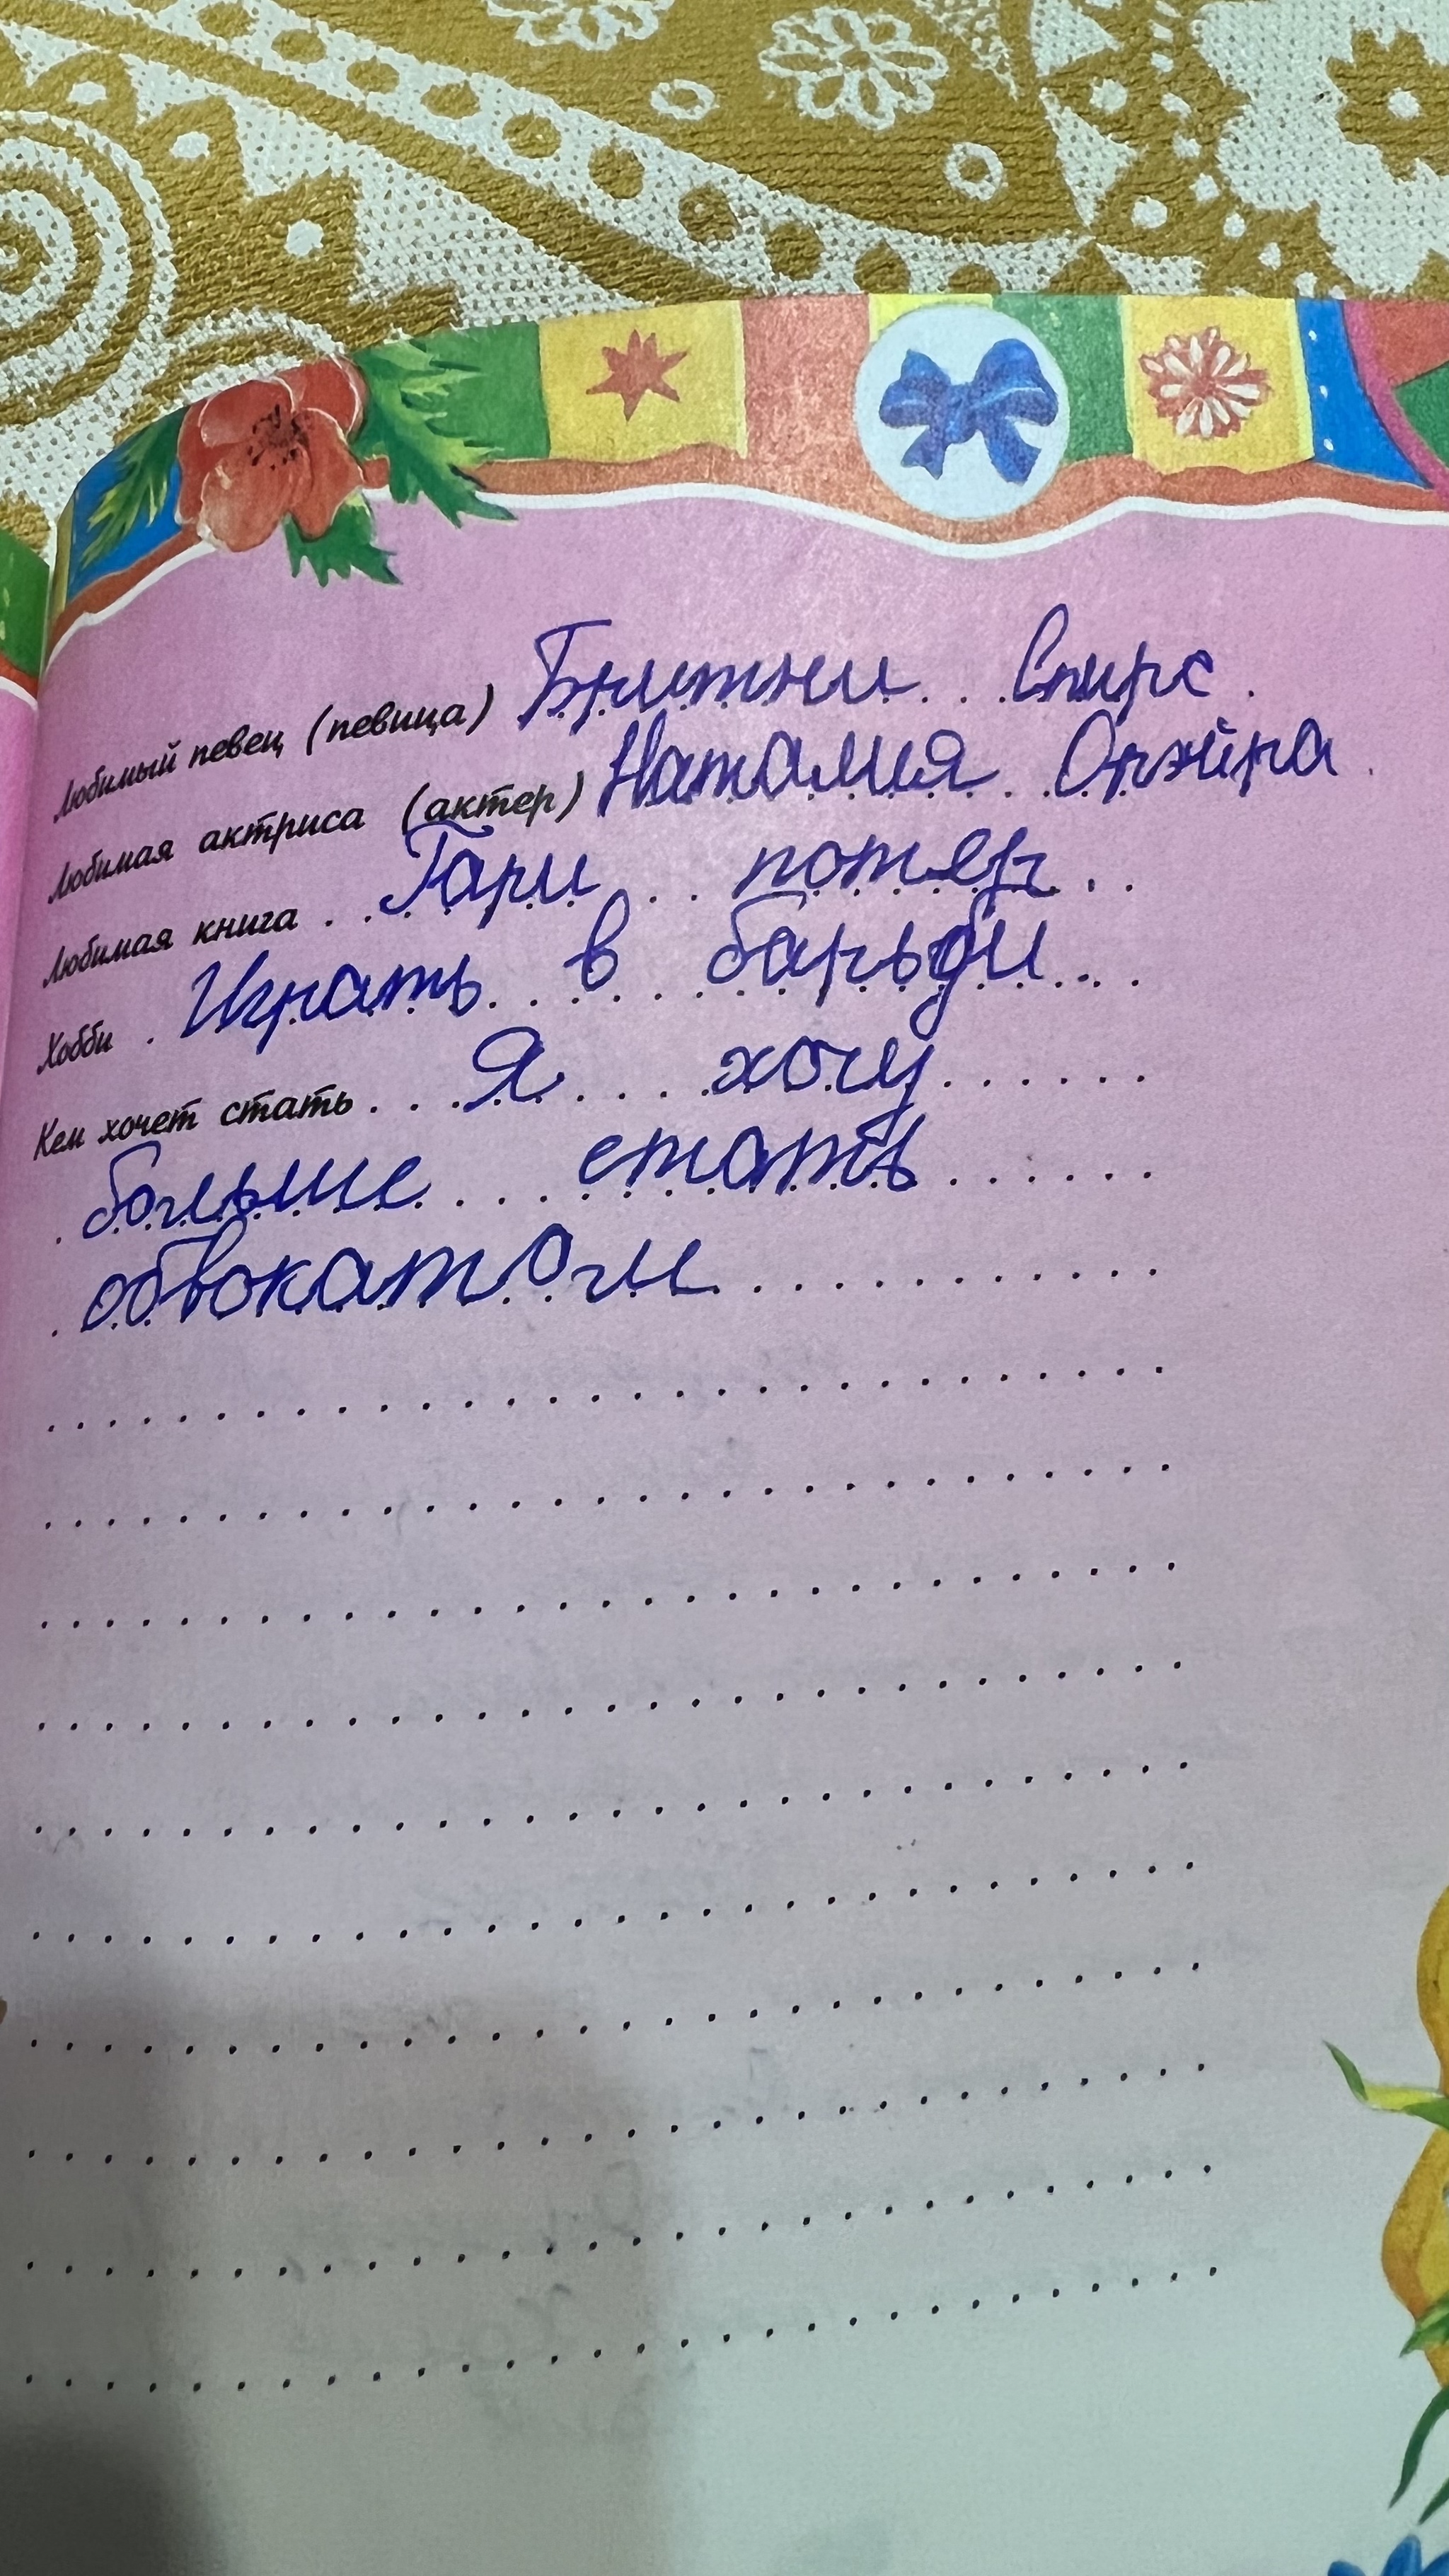 Любимый певец (певица) Бритни Спирс
Любимая актриса (актер) Наталия Орэйра
Любимая книга Гари потер
Хобби Играть в барьби
Кем хочет стать Я хочу
больше стать
обвокатом